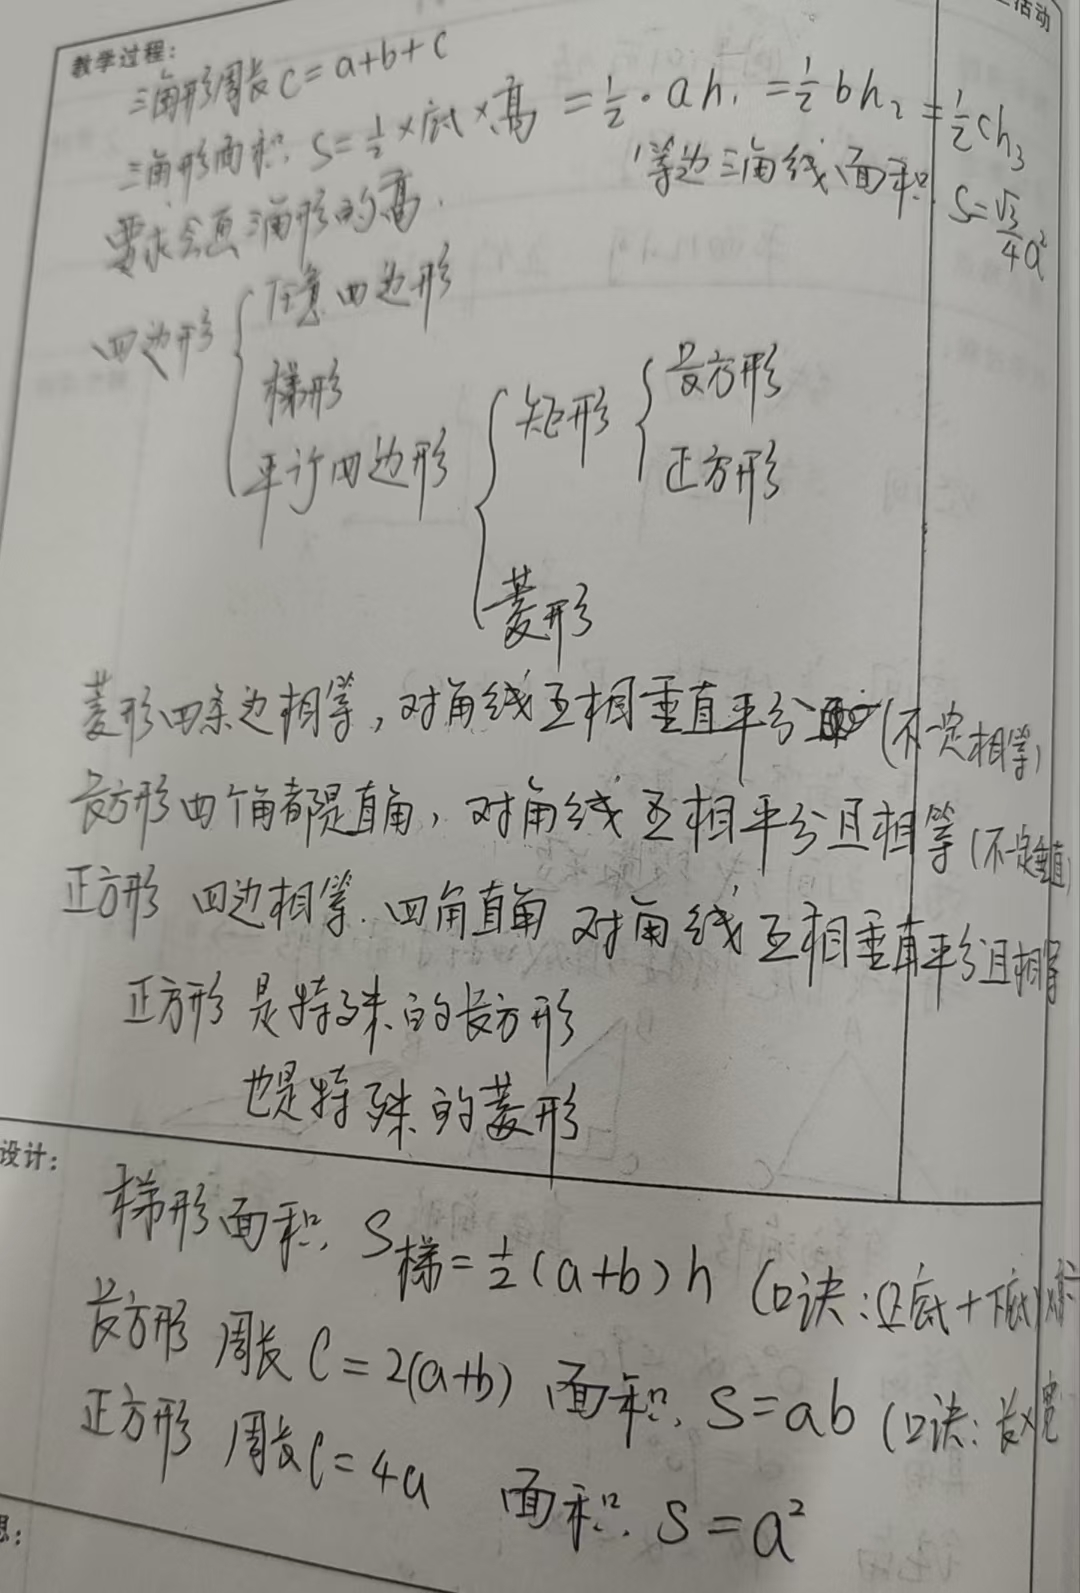 活动
教学过程:
三角形周长 C=a+b+c
三角形面积. S=½×底×高 =½·ah₁ =½bh₂ =½ch₃
要求会画三角形的高.
等边三角线面积. S=√3/4 a²
四边形 { 任意四边形
梯形
平行四边形 { 矩形 { 长方形
正方形
菱形
菱形四条边相等,对角线互相垂直平分 (不一定相等)
长方形四个角都是直角,对角线互相平分且相等 (不一定垂直)
正方形 四边相等. 四角直角 对角线互相垂直平分且相等
正方形是特殊的长方形
也是特殊的菱形
设计:
梯形面积. S梯=½(a+b)h (口诀:(上底+下底)×
长方形 周长 C=2(a+b) 面积. S=ab (口诀: 长×宽
正方形 周长 C=4a 面积. S=a²
思: